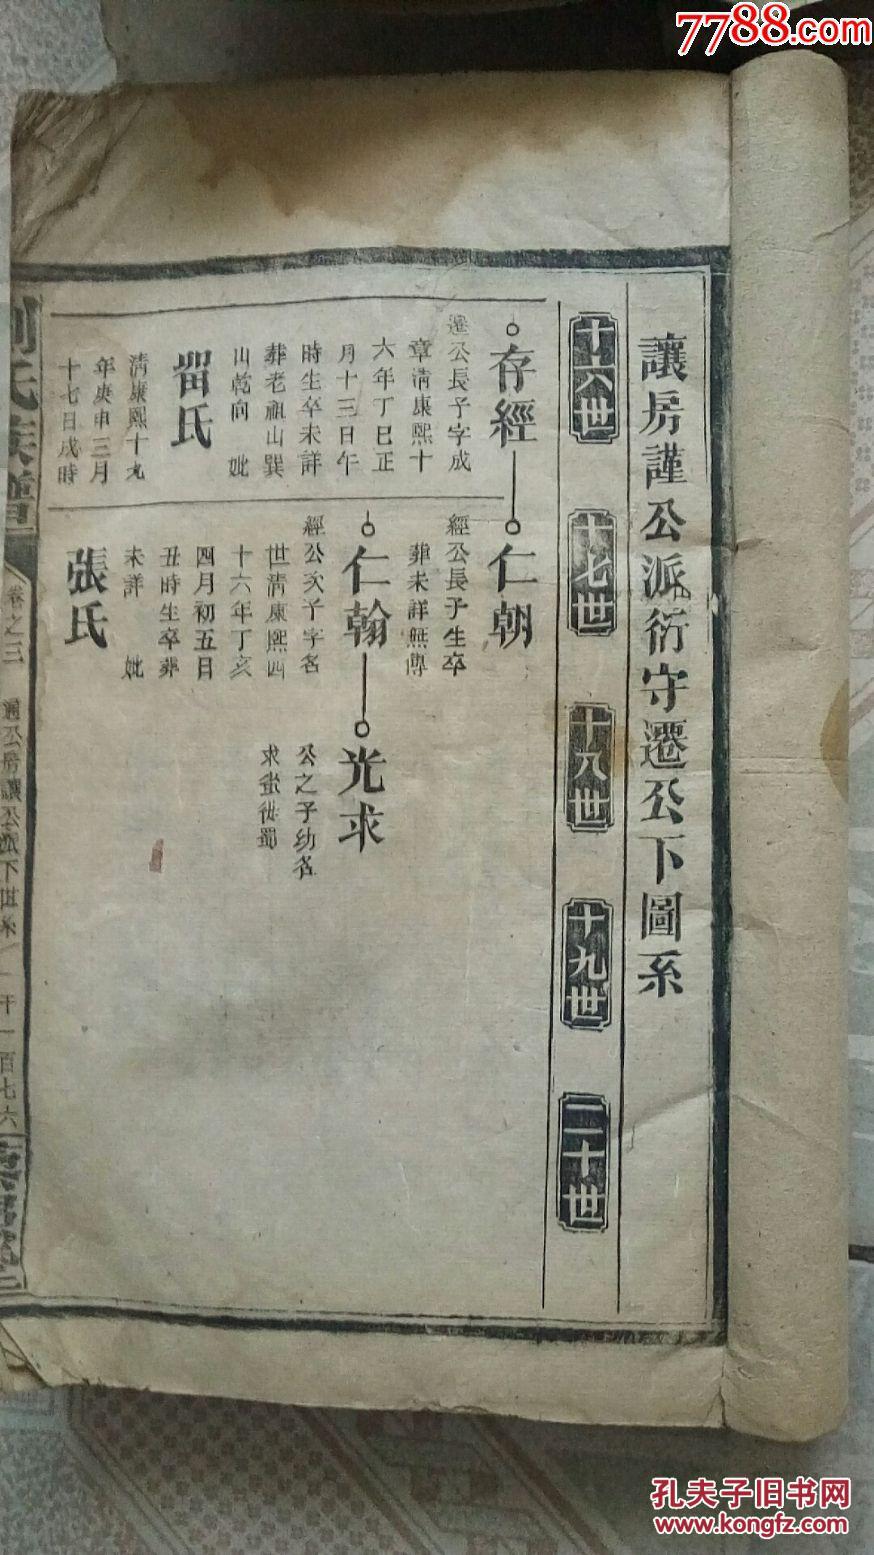 7788.com
讓房謹公派衍守遷公下圖系
十六世
十七世
十八世
十九世
二十世
存經
遷公長子字成
章清康熙十
六年丁巳正
月十三日午
時生卒未詳
葬老祖山巽
山乾向 妣
留氏
清康熙十九
年庚申三月
十七日戌時
仁朝
經公長子生卒
葬未詳無傳
仁翰
經公次子字名
世清康熙四
十六年丁亥
四月初五日
丑時生卒葬
未詳 妣
張氏
光求
公之子幼名
求蚩徙蜀
劉氏族譜
卷之三
通公房讓公派下世系
一千一百七六
孔夫子旧书网
www.kongfz.com